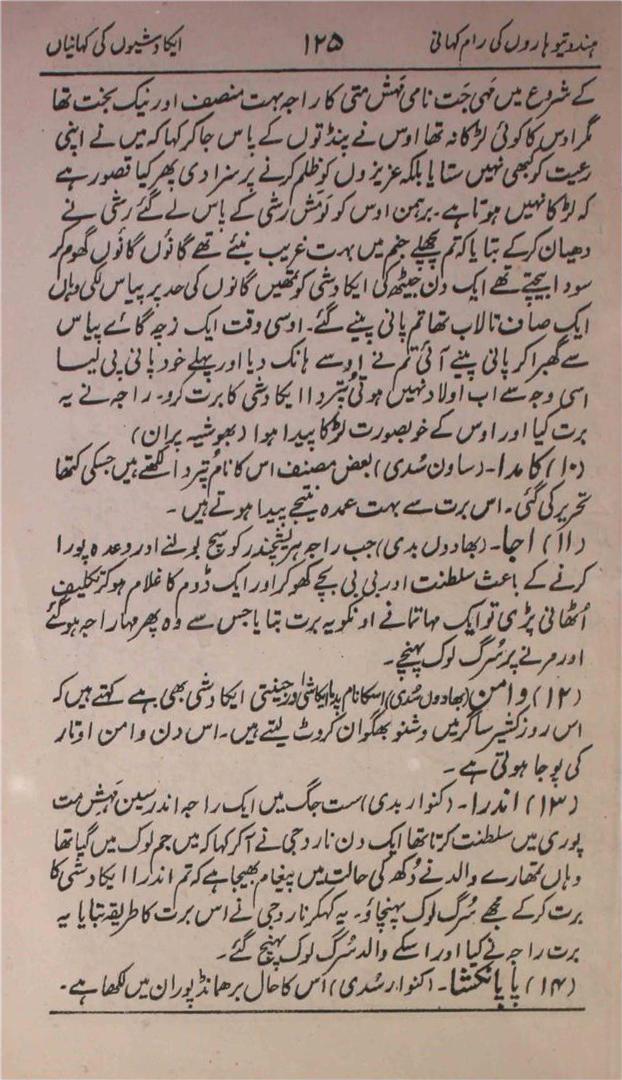 ہندو تیوہاروں کی رام کہانی ۱۲۵ ایکادشیوں کی کہانیاں
کے شروع میں مَہی جَت نامی مَہِش متی کا راجہ بہت منصف اور نیک بخت تھا
مگر اوس کا کوئی لڑکا نہ تھا اوس نے پنڈتوں کے پاس جاکر کہا کہ میں نے اپنی
رعیت کو کبھی نہیں ستایا بلکہ عزیزوں کو ظلم کرنے پر سزا دی پھر کیا قصور ہے
کہ لڑکا نہیں ہوتا ہے۔ برہمن اوس کو لَومَش رِشی کے پاس لے گئے رشی نے
دھیان کرکے بتایا کہ تم پچھلے جنم میں بہت غریب بنیئے تھے گانوٗں گانوٗں گھوم کر
سودا بیچتے تھے ایک دن جیٹھ کی ایکادشی کو تمھیں گانوں کی حد پر پیاس لگی وہاں
ایک صاف تالاب تھا تم پانی پینے گئے۔ اوسی وقت ایک زچہ گائے پیاس
سے گھبرا کر پانی پینے آئی تم نے اوسے ہانک دیا اور پہلے خود پانی پی لیا
اسی وجہ سے اب اولاد نہیں ہوتی پُتردا ایکادشی کا برت کرو۔ راجہ نے یہ
برت کیا اور اوس کے خوبصورت لڑکا پیدا ہوا (بھوشیہ پران)
(۱۰) کامدا۔ (ساون سُدی) بعض مصنف اس کا نام پُتردا لکھتے ہیں جسکی کتھا
تحریر کی گئی۔ اس برت سے بہت عمدہ نتیجے پیدا ہوتے ہیں۔
(۱۱) اجا۔ (بھادوں بدی) جب راجہ ہریشچندر کو سچ بولنے اور وعدہ پورا
کرنے کے باعث سلطنت اور بی بی بچے کھوکر اور ایک ڈوم کا غلام ہوکر تکلیف
اُٹھانی پڑی تو ایک مہاتما نے اونکو یہ برت بتایا جس سے وہ پھر مہاراجہ ہوگئے
اور مرنے پر سُرگ لوک پہنچے۔
(۱۲) وامن (بھادوں سُدی) اسکا نام پدما ایکادشی اور جینتی ایکادشی بھی ہے کہتے ہیں کہ
اس روز کشیر ساگر میں وِشنو بھگوان کروٹ لیتے ہیں۔ اس دن وامن اوتار
کی پوجا ہوتی ہے۔
(۱۳) اندرا۔ (کنوار بدی) ست جگ میں ایک راجہ اندر سین مَہِش مت
پوری میں سلطنت کرتا تھا ایک دن نارد جی نے آکر کہا کہ میں جم لوک میں گیا تھا
وہاں تمھارے والد نے دُکھ کی حالت میں پیغام بھیجا ہے کہ تم اندرا ایکادشی کا
برت کرکے مجھے سُرگ لوک پہنچاؤ۔ یہ کہکر نارد جی نے اس برت کا طریقہ بتایا یہ
برت راجہ نے کیا اور اسکے والد سُرگ لوک پہنچ گئے۔
(۱۴) پاپانکشا۔ (کنوار سُدی) اس کا حال برھمانڈ پوران میں لکھا ہے۔